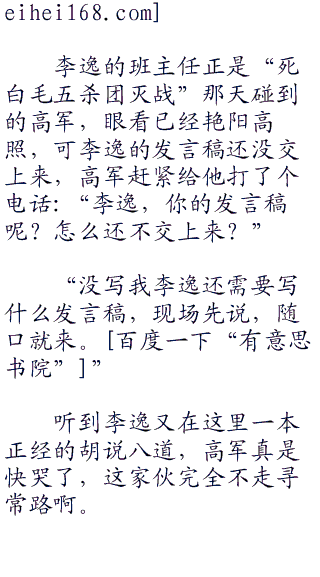 eihei168.com]
李逸的班主任正是“死
白毛五杀团灭战”那天碰到
的高军，眼看已经艳阳高
照，可李逸的发言稿还没交
上来，高军赶紧给他打了个
电话：“李逸，你的发言稿
呢？怎么还不交上来？”
“没写我李逸还需要写
什么发言稿，现场先说，随
口就来。[百度一下“有意思
书院”]”
听到李逸又在这里一本
正经的胡说八道，高军真是
快哭了，这家伙完全不走寻
常路啊。